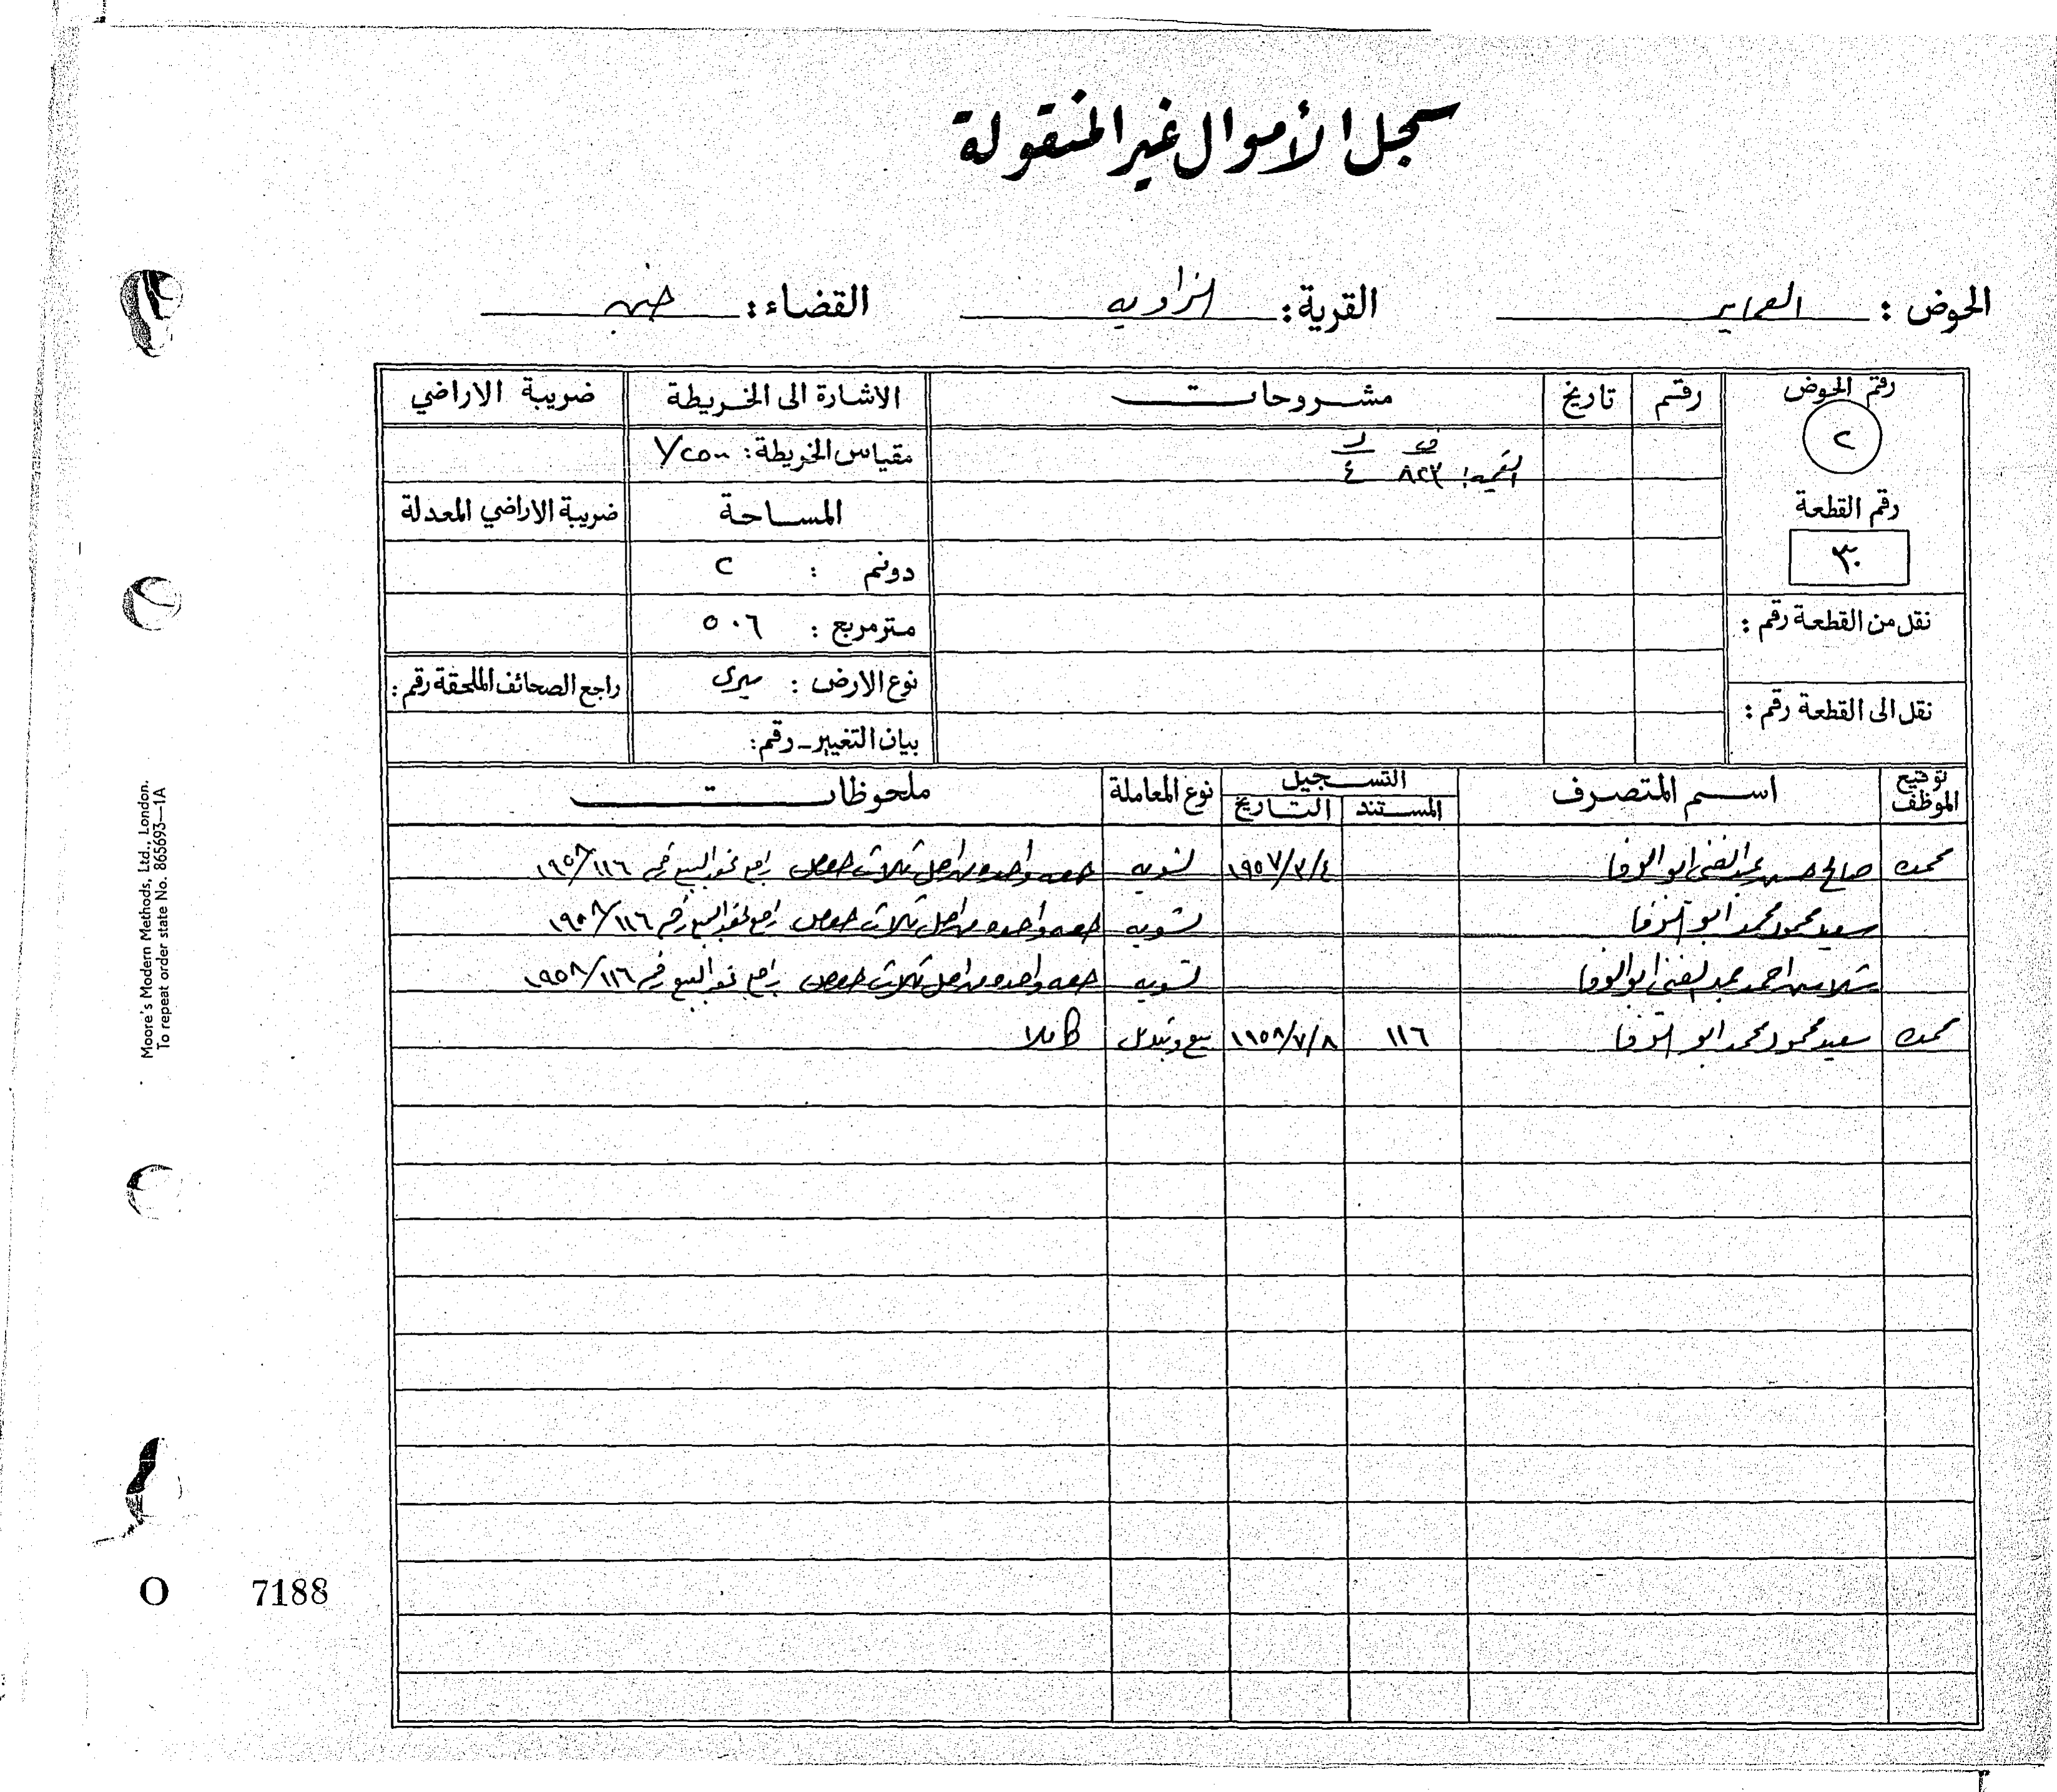 سجل الأموال غير المنقولة
الحوض : العماير القرية : الزاويه القضاء : جنين
رقم الحوض رقم تاريخ مشروحات الاشارة الى الخريطة ضريبة الاراضي
٢ ف د مقياس الخريطة : ١/٢٥٠٠
القيمه : ٨٢٣ ٤
رقم القطعة المساحة ضريبة الاراضي المعدلة
٣٠ دونم : ٢
نقل من القطعة رقم : متر مربع : ٥٠٦
نوع الارض : ميرى راجع الصحائف الملحقة رقم :
نقل الى القطعة رقم : بيان التغيير - رقم :
توقيع الموظف اسم المتصرف التسجيل نوع المعاملة ملحوظات
المستند التاريخ
صالح حسن عبد الغني ابو الوفا ١٩٥٧/٣/٤ تسويه حصه واحده من اصل ثلاث حصص راجع عقد البيع رقم ١٩٥٨/١١٦
سعيد محمود محمد ابو الوفا تسويه حصه واحده من اصل ثلاث حصص راجع عقد البيع رقم ١٩٥٨/١١٦
احمد عبد الغني ابو الوفا تسويه حصه واحده من اصل ثلاث حصص راجع عقد البيع رقم ١٩٥٨/١١٦
سعيد محمود محمد ابو الوفا ١١٦ ١٩٥٨/٧/٨ بيع وتبديل كاملا
Moore's Modern Methods, Ltd., London.
To repeat order state No. 865693—1A
O 7188